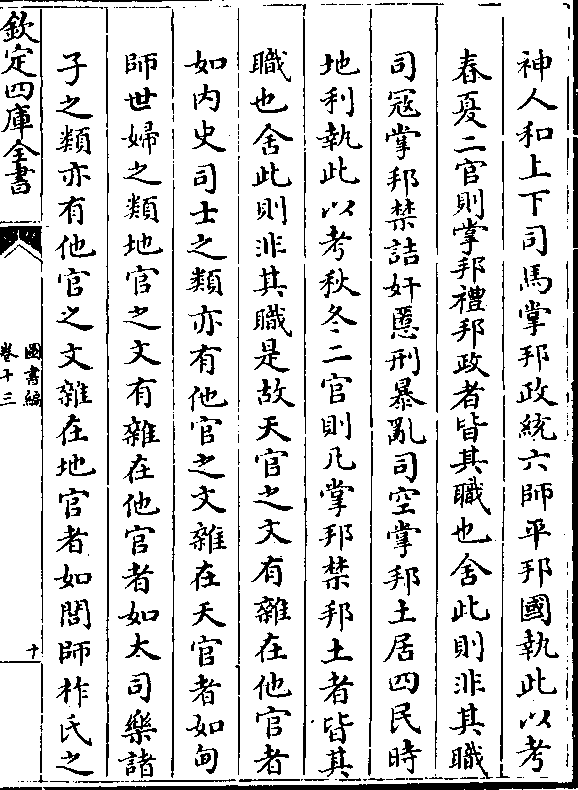 神人和上下司馬掌邦政統六師平邦國執此以考
春夏二官則掌邦禮邦政者皆其職也舍此則非其職
司寇掌邦禁詰奸慝刑暴亂司空掌邦土居四民時
地利執此以考秋冬二官則凡掌邦禁邦土者皆其
職也舍此則非其職是故天官之文有雜在他官者
如内史司士之類亦有他官之文雜在天官者如甸
師世婦之類地官之文有雜在他官者如大司樂諸
子之類亦有他官之文雜在地官者如閭師柞氏之
欽定四庫全書
圖書編
卷十三
十